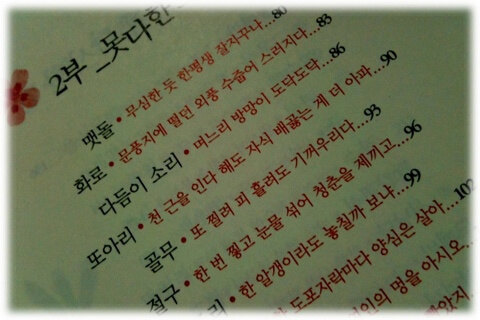 2부 _ 못다한
맷돌 • 무심한 듯 한평생 잘지꾸나...80
화로 • 문풍지에 떨던 외풍 수줍어 스러지다...83
다듬이 소리 • 며느리 방망이 도닥도닥...86
또아리 • 천 근을 인다 해도 자식 배곯는 게 더 아파...90
골무 • 또 찔려 피 흘려도 기꺼우리다...93
절구 • 한 번 찧고 눈물 섞어 청춘을 제끼고...96
리 • 한 알갱이라도 놓칠까 보냐...99
도포자락마다 양심은 살아...102
여인의 명을 아시오